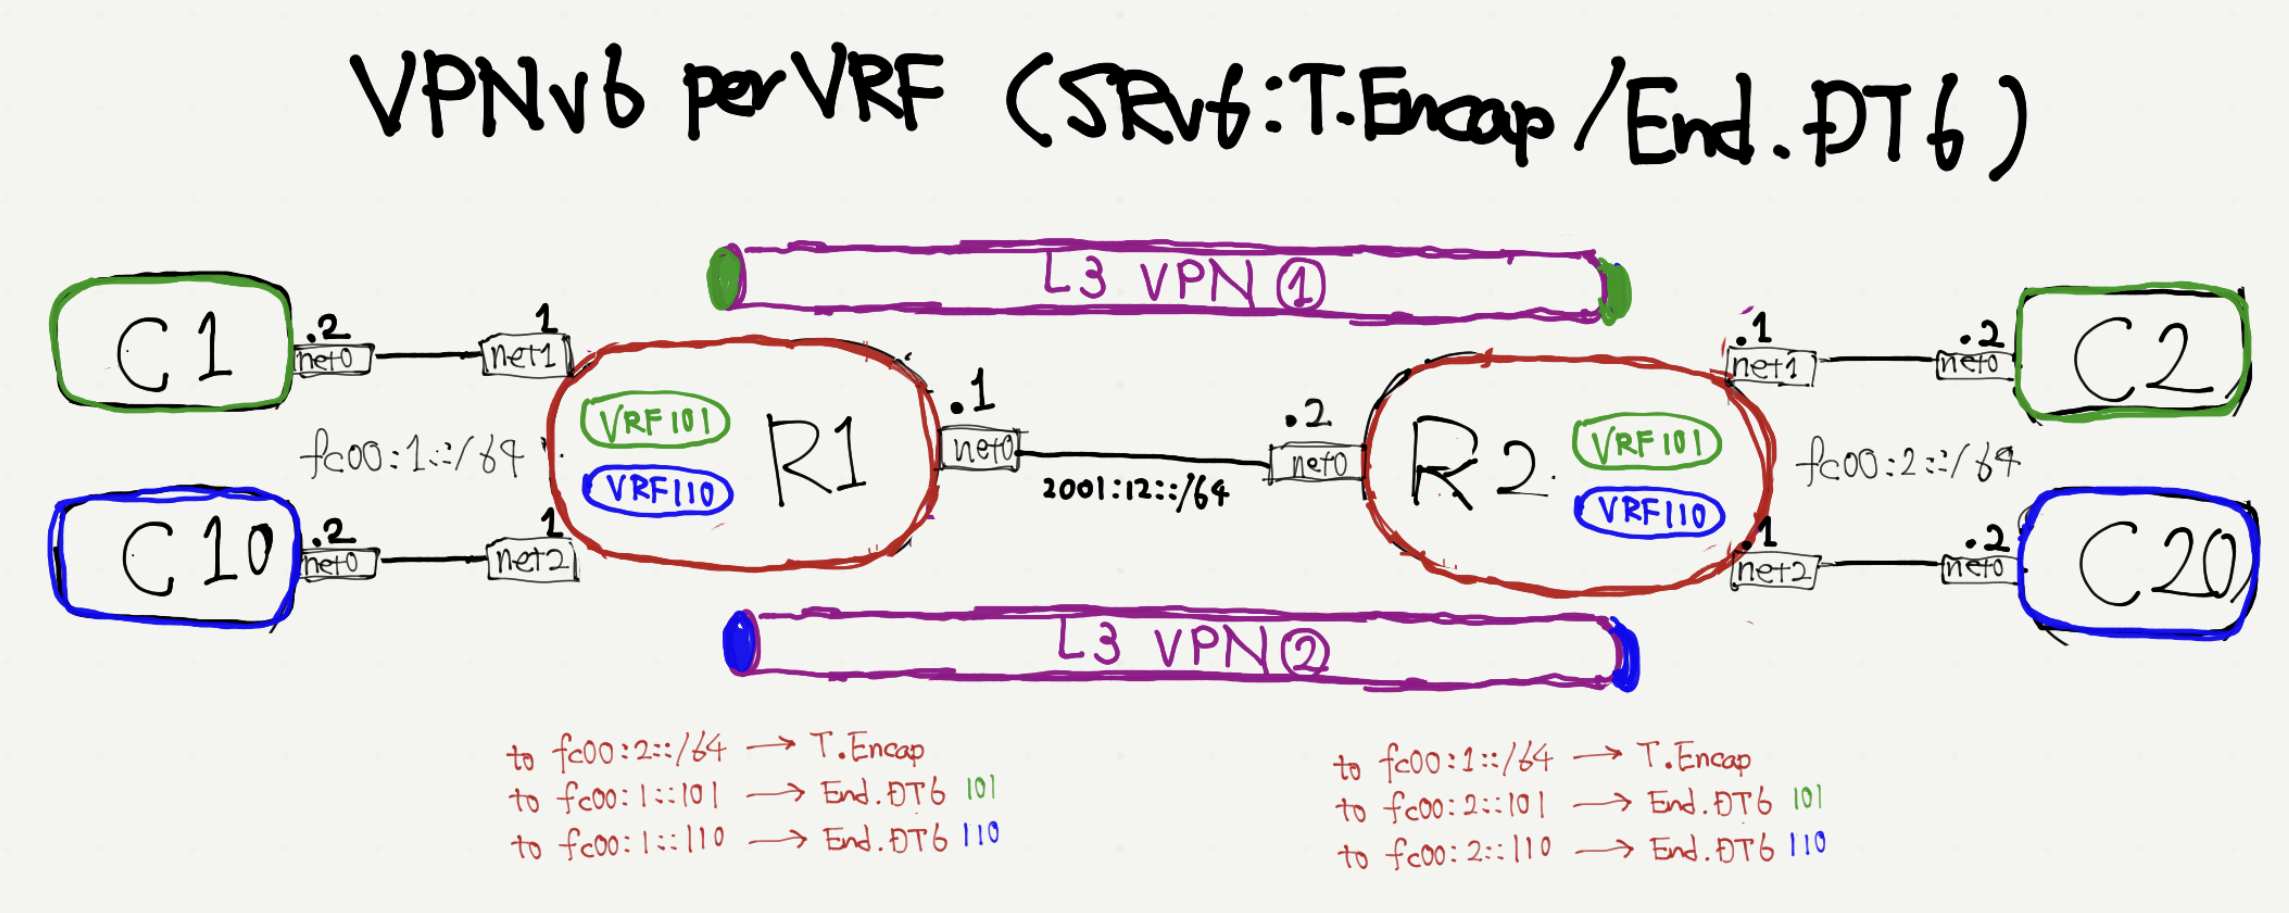 VPNv6 per VRF (SRv6:T.Encap/End.DT6)
L3 VPN ①
C1
.2
net0
1
net1
.1
net1
.2
net0
C2
VRF101
VRF110
R1
.1
net0
2001:12::/64
.2
net0
R2
VRF101
VRF110
fc00:1::/64
fc00:2::/64
C10
.2
net0
1
net2
.1
net2
.2
net0
C20
L3 VPN ②
to fc00:2::/64 → T.Encap
to fc00:1::101 → End.DT6 101
to fc00:1::110 → End.DT6 110
to fc00:1::/64 → T.Encap
to fc00:2::101 → End.DT6 101
to fc00:2::110 → End.DT6 110